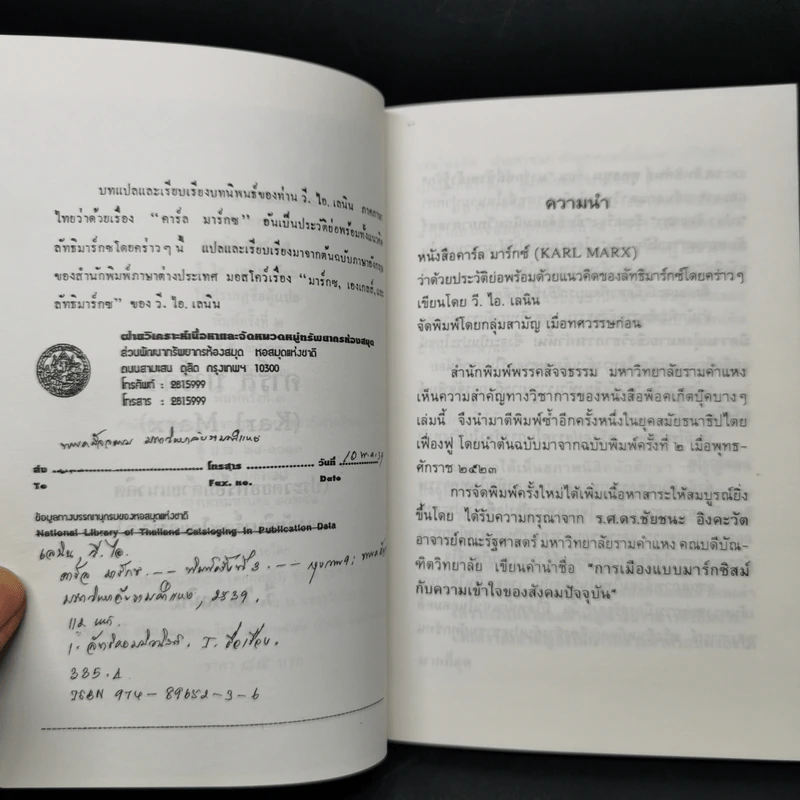 บทแปลและเรียบเรียงบทนิพนธ์ของท่าน วี. ไอ. เลนิน ภาค
ไทยว่าด้วยเรื่อง “คาร์ล มาร์กซ” อันเป็นประวัติย่อพร้อมทั้งแนวคิด
ลัทธิมาร์กซโดยคร่าว ๆ นี้ แปลและเรียบเรียงมาจากต้นฉบับภาษาอังกฤษ
ของสำนักพิมพ์ภาษาต่างประเทศ มอสโคว์เรื่อง “มาร์กซ, เองเกลส์, และ
ลัทธิมาร์กซ” ของ วี. ไอ. เลนิน
ฝ่ายวิเคราะห์เนื้อหาและจัดหมวดหมู่ทรัพยากรห้องสมุด
ส่วนพัฒนาทรัพยากรห้องสมุด หอสมุดแห่งชาติ
ถนนสามเสน ดุสิต กรุงเทพฯ 10300
โทรศัพท์ : 2815999
โทรสาร : 2815999
มหาวิทยาลัยรามคำแหง
ส่ง โทรสาร วันที่ 10 พ.ค. 39
To Fax. no. Date
ข้อมูลทางบรรณานุกรมของหอสมุดแห่งชาติ
National Library of Thailand Cataloging in Publication Data
เลนิน วี. ไอ.
คาร์ล มาร์กซ. -- พิมพ์ครั้งที่ 3. -- กรุงเทพฯ :
มหาวิทยาลัยรามคำแหง, 2539.
112 หน้า.
1. ลัทธิคอมมิวนิสต์. I. ชื่อเรื่อง.
335.4
ISBN 974-89652-3-6
ความนำ
หนังสือคาร์ล มาร์กซ์ (KARL MARX)
ว่าด้วยประวัติย่อพร้อมด้วยแนวคิดของลัทธิมาร์กซ์โดยคร่าว ๆ
เขียนโดย วี. ไอ. เลนิน
จัดพิมพ์โดยกลุ่มสามัญ เมื่อทศวรรษก่อน
สำนักพิมพ์พรรคสัจจธรรม มหาวิทยาลัยรามคำแหง
เห็นความสำคัญทางวิชาการของหนังสือพ็อคเก็ตบุ๊คบาง ๆ
เล่มนี้ จึงนำมาตีพิมพ์ซ้ำอีกครั้งหนึ่งในยุคสมัยธนาธิปไตย
เฟื่องฟู โดยนำต้นฉบับมาจากฉบับพิมพ์ครั้งที่ ๒ เมื่อพุทธ-
ศักราช ๒๕๒๓
การจัดพิมพ์ครั้งใหม่ได้เพิ่มเนื้อหาสาระให้สมบูรณ์ยิ่ง
ขึ้นโดย ได้รับความกรุณาจาก ร.ศ.ดร.ชัยชนะ อิงคะวัต
อาจารย์คณะรัฐศาสตร์ มหาวิทยาลัยรามคำแหง คณบดีบัณ-
ฑิตวิทยาลัย เขียนคำนำชื่อ “การเมืองแบบมาร์กซิสม์
กับความเข้าใจของสังคมปัจจุบัน”